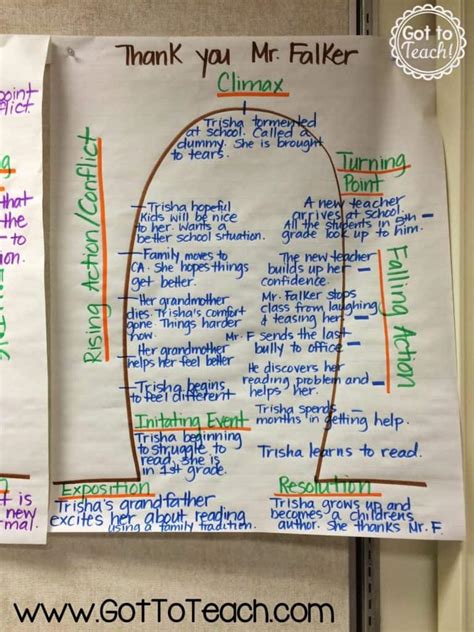 Got to
Teach!
Thank you Mr. Falker
Climax
Trisha tormented
at school. Called a
dummy. She is brought
to tears.
Turning
Point
A new teacher
arrives at school.
All the students in 5th
grade look up to him.
Rising Action/Conflict
Trisha hopeful
Kids will be nice
to her. Wants a
better school situation.
Family moves to
CA. She hopes things
get better.
Her grandmother
dies. Trisha's comfort
gone. Things harder
now.
Her grandmother
helps her feel better
Trisha begins
to feel different
Falling Action
The new teacher
builds up her
confidence.
Mr. Falker stops
class from laughing
& teasing her
Mr. F sends the last
bully to office
He discovers her
reading problem and
helps her.
Trisha spends
months in getting help.
Trisha learns to read.
Initating Event
Trisha beginning
to struggle to
read. She is
in 1st grade.
Exposition
Trisha's grandfather
excites her about reading
using a family tradition.
Resolution
Trisha grows up and
becomes a childrens
author. She thanks Mr. F.
point
that
the
to
is
new
www.GotToTeach.com